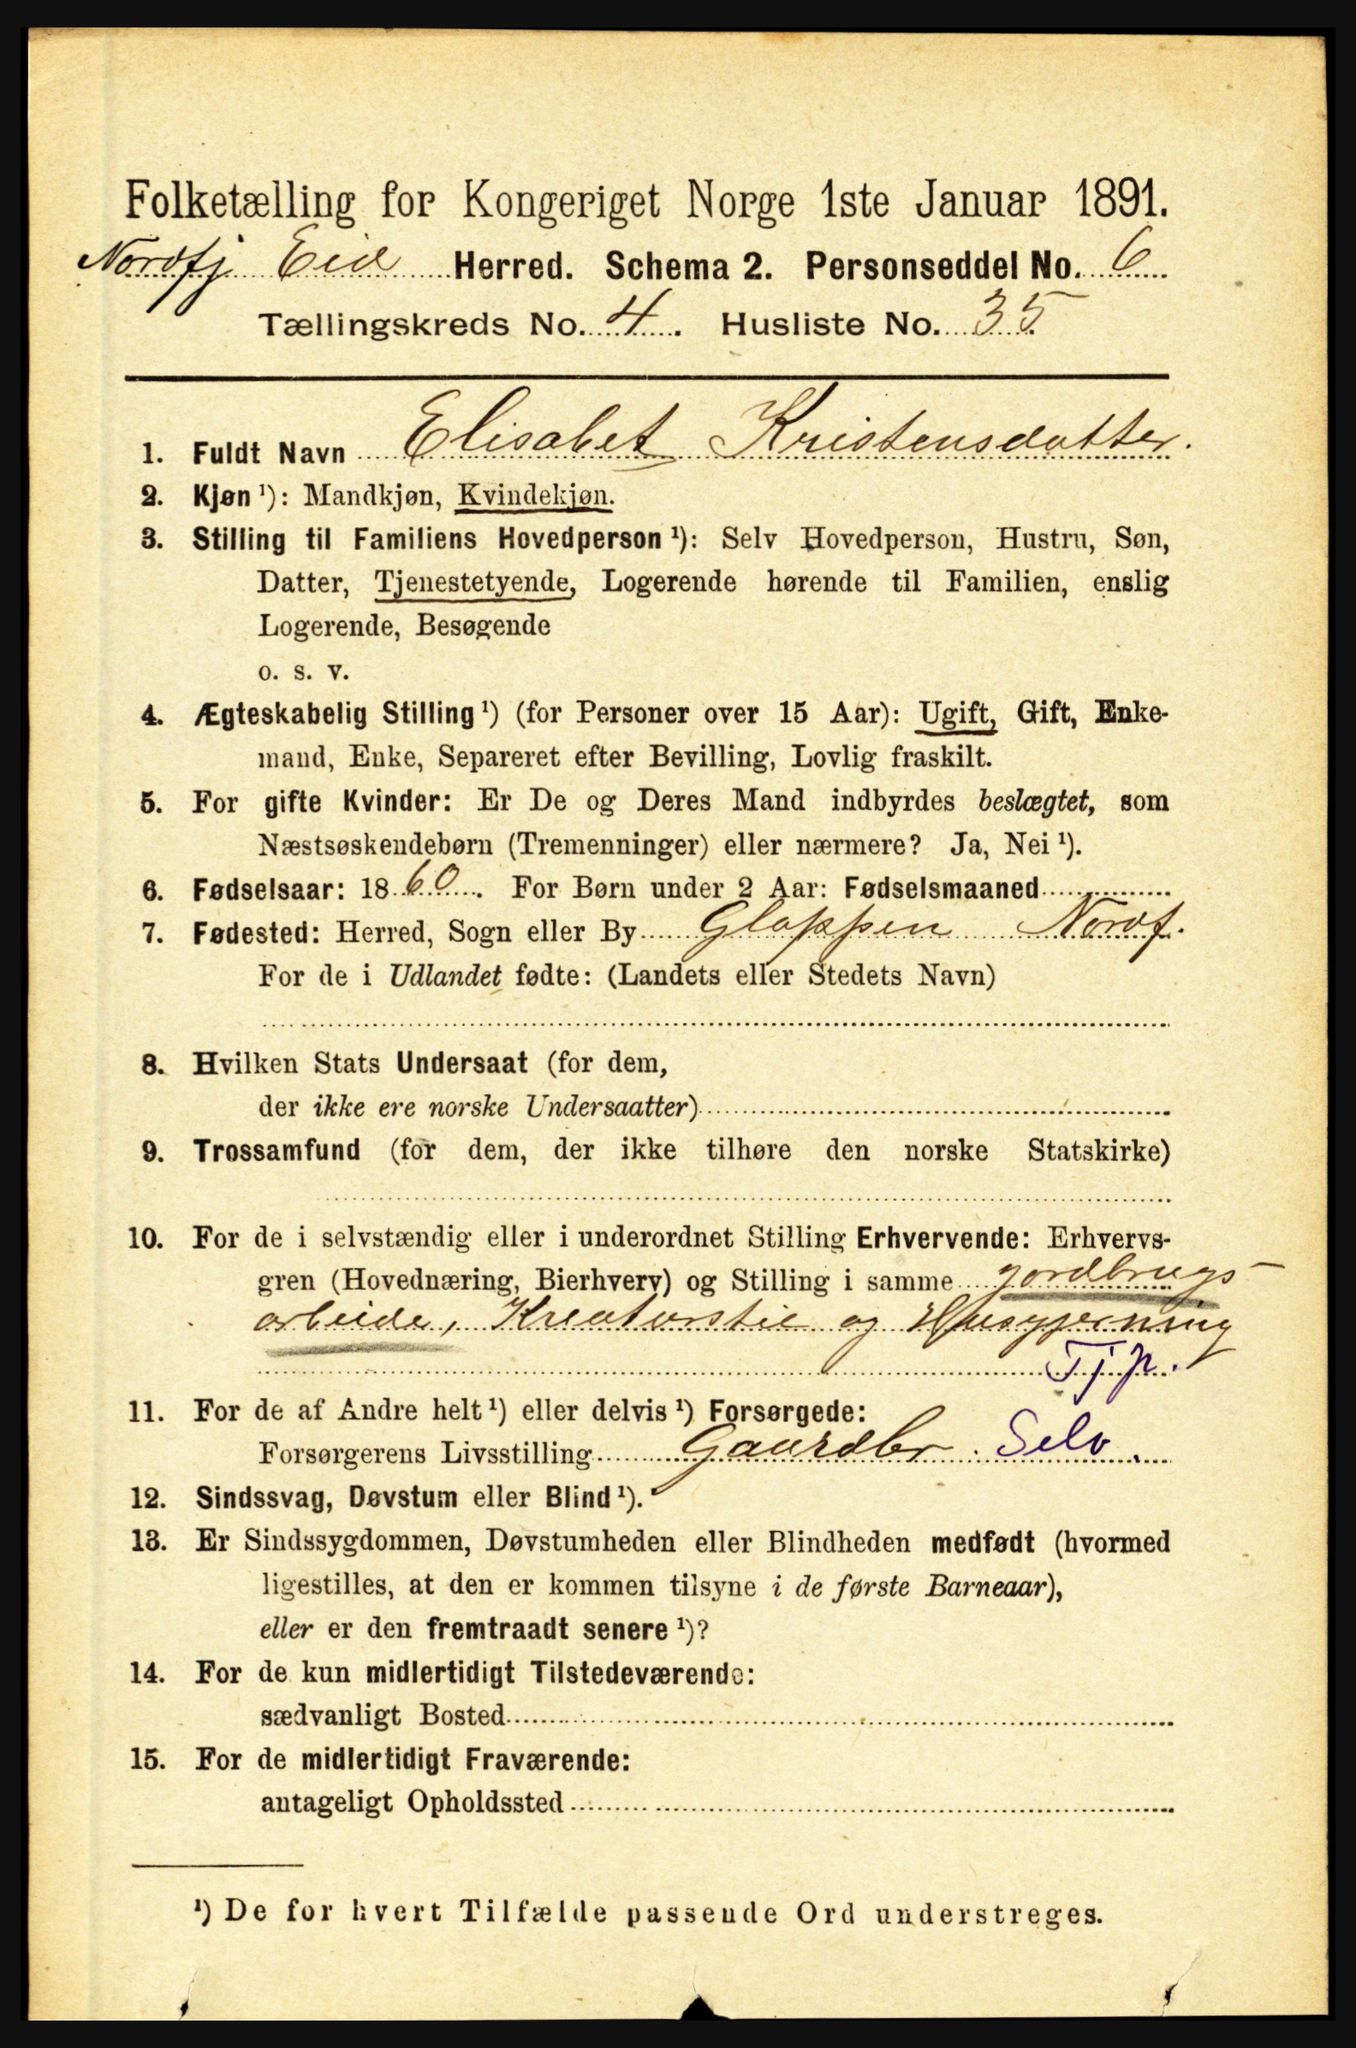 Folketælling for Kongeriget Norge 1ste Januar 1891.
Nordfj Eid Herred. Schema 2. Personseddel No. 6
Tællingskreds No. 4. Husliste No. 35
1. Fuldt Navn Elisabet Kristensdatter.
2. Kjøn ¹): Mandkjøn, Kvindekjøn.
3. Stilling til Familiens Hovedperson ¹): Selv Hovedperson, Hustru, Søn,
Datter, Tjenestetyende, Logerende hørende til Familien, enslig
Logerende, Besøgende
o. s. v.
4. Ægteskabelig Stilling ¹) (for Personer over 15 Aar): Ugift, Gift, Enke-
mand, Enke, Separeret efter Bevilling, Lovlig fraskilt.
5. For gifte Kvinder: Er De og Deres Mand indbyrdes beslægtet, som
Næstsøskendebørn (Tremenninger) eller nærmere? Ja, Nei ¹).
6. Fødselsaar: 1860. For Børn under 2 Aar: Fødselsmaaned
7. Fødested: Herred, Sogn eller By Gloppen Nordf.
For de i Udlandet fødte: (Landets eller Stedets Navn)
8. Hvilken Stats Undersaat (for dem,
der ikke ere norske Undersaatter)
9. Trossamfund (for dem, der ikke tilhøre den norske Statskirke)
10. For de i selvstændig eller i underordnet Stilling Erhvervende: Erhvervs-
gren (Hovednæring, Bierhverv) og Stilling i samme jordbrugs-
arbeide, Kreaturstel og Husgjerning
Tjp.
11. For de af Andre helt ¹) eller delvis ¹) Forsørgede:
Forsørgerens Livsstilling Gaardbr. Selv.
12. Sindssvag, Døvstum eller Blind ¹).
13. Er Sindssygdommen, Døvstumheden eller Blindheden medfødt (hvormed
ligestilles, at den er kommen tilsyne i de første Barneaar),
eller er den fremtraadt senere ¹)?
14. For de kun midlertidigt Tilstedeværende:
sædvanligt Bosted
15. For de midlertidigt Fraværende:
antageligt Opholdssted
¹) De for hvert Tilfælde passende Ord understreges.